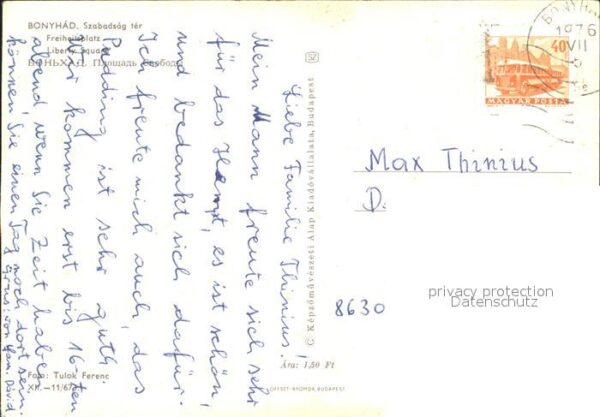 BONYHÁD. Szabadság tér
Freiheitsplatz
Liberty Square
БОНЬХАД. Площадь Свободы
Liebe Familie Thinius!
Mein Mann freute sich sehr
für das Hemt, es ist schön,
und bedankt sich dafür.
Ich freute mich auch, das
Pudding ist sehr gut.
Wir kommen erst bis 16-ten
abend wenn Sie Zeit haben
können Sie einen Tag noch dort sein.
Gruss: von Fam. Dávid
Foto: Tulok Ferenc
XII.—11/67
© Képzőművészeti Alap Kiadóvállalata, Budapest
Ára: 1,50 Ft
OFFSET-NYOMDA, BUDAPEST
BONYHÁD
1976
VII
40
MAGYAR POSTA
Max Thinius
D.
8630
privacy protection
Datenschutz